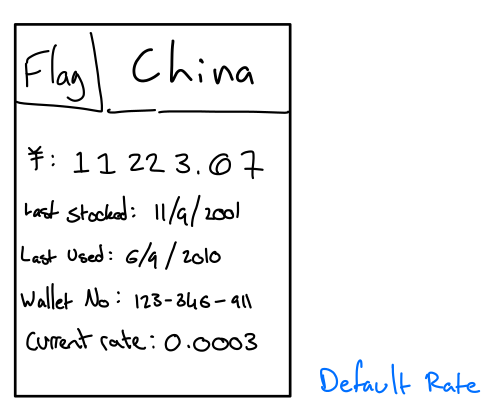 Flag China
¥: 11223.07
Last Stocked: 11/9/2001
Last Used: 6/9/2010
Wallet No: 123-346-911
Current rate: 0.0003
Default Rate